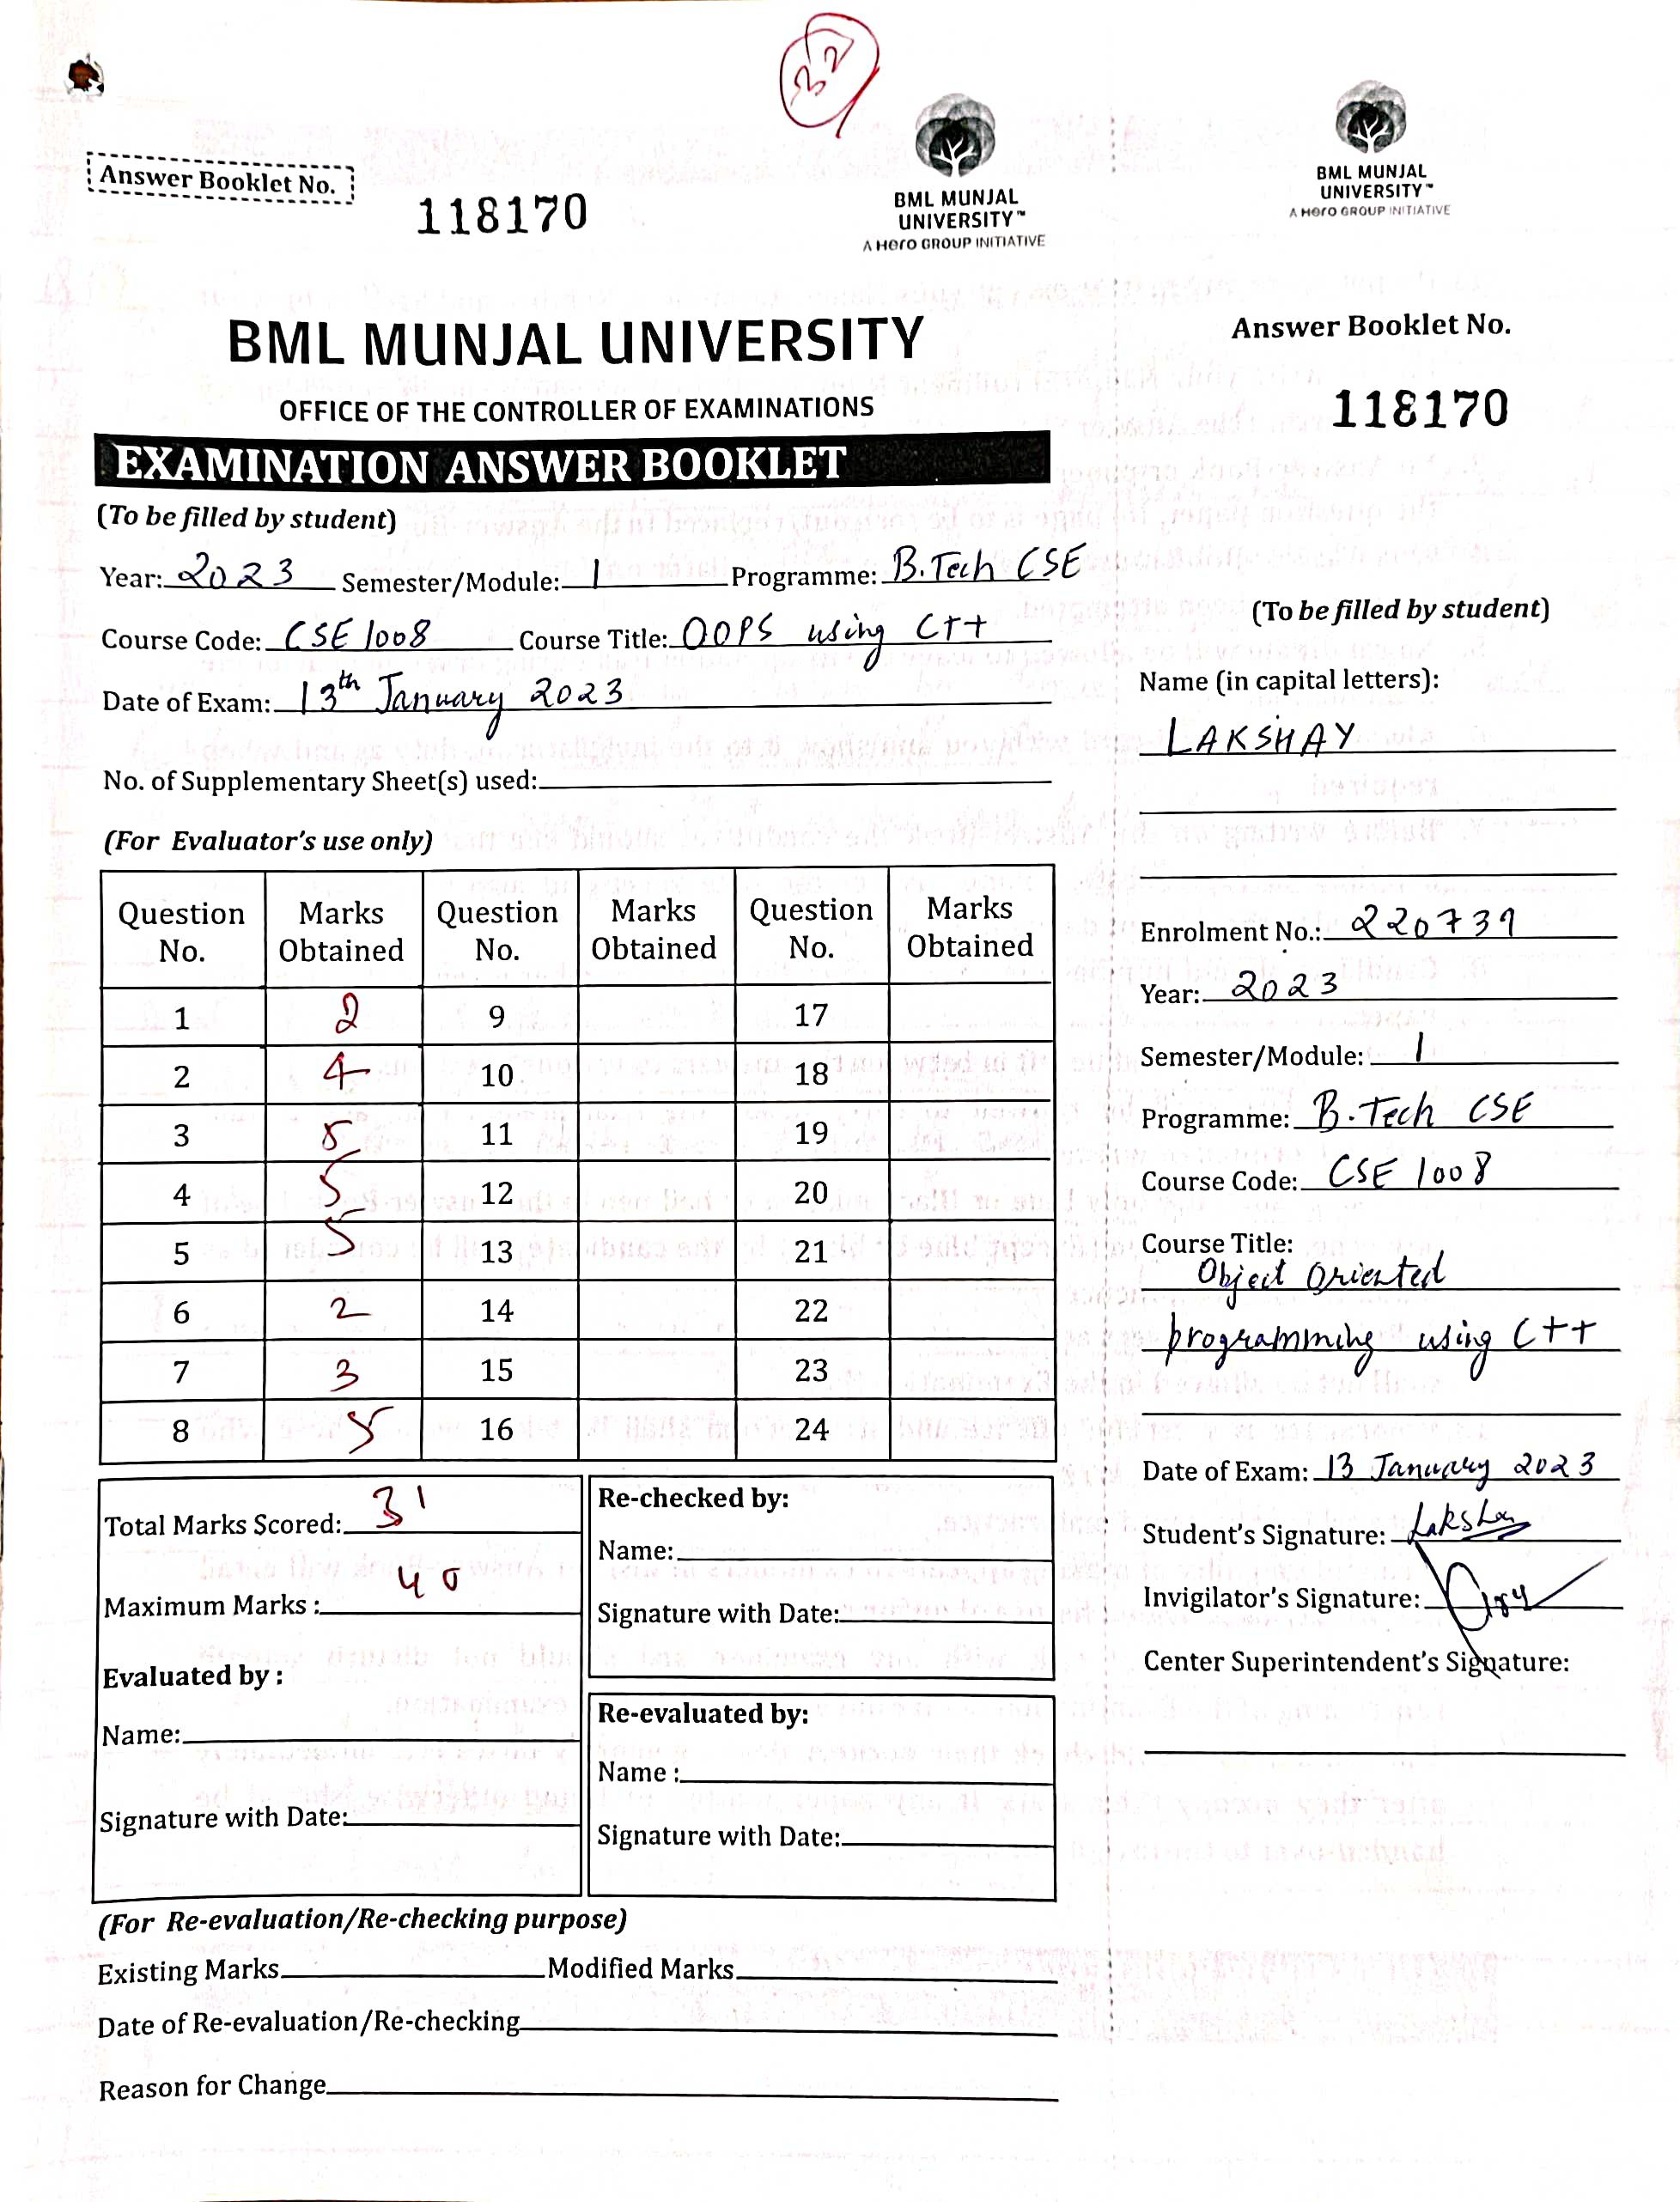 32
BML MUNJAL
UNIVERSITY™
A Hero GROUP INITIATIVE
BML MUNJAL
UNIVERSITY™
A Hero GROUP INITIATIVE
Answer Booklet No.
118170
BML MUNJAL UNIVERSITY
OFFICE OF THE CONTROLLER OF EXAMINATIONS
EXAMINATION ANSWER BOOKLET
(To be filled by student)
Year: 2023 Semester/Module: 1 Programme: B.Tech CSE
Course Code: CSE 1008 Course Title: OOPS using C++
Date of Exam: 13th January 2023
No. of Supplementary Sheet(s) used:
(For Evaluator's use only)
Question No. Marks Obtained Question No. Marks Obtained Question No. Marks Obtained
1 2 9 17
2 4 10 18
3 5 11 19
4 5 12 20
5 5 13 21
6 2 14 22
7 3 15 23
8 5 16 24
Total Marks Scored: 31
Maximum Marks : 40
Evaluated by :
Name:
Signature with Date:
Re-checked by:
Name:
Signature with Date:
Re-evaluated by:
Name :
Signature with Date:
(For Re-evaluation/Re-checking purpose)
Existing Marks Modified Marks
Date of Re-evaluation/Re-checking
Reason for Change
Answer Booklet No.
118170
(To be filled by student)
Name (in capital letters):
LAKSHAY
Enrolment No.: 220739
Year: 2023
Semester/Module: 1
Programme: B.Tech CSE
Course Code: CSE 1008
Course Title:
Object Oriented
programming using C++
Date of Exam: 13 January 2023
Student's Signature: Lakshay
Invigilator's Signature:
Center Superintendent's Signature: